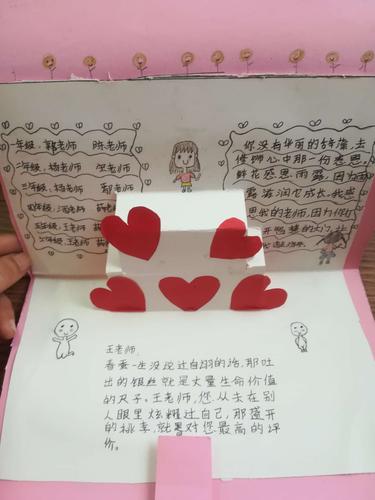 一年级，郭老师 陈老师
二年级，杨老师 贺老师
三年级，杨老师 郁老师
四年级，汪老师
五年级，王老师
六年级，王老师
你没有华丽的辞藻，去
修饰心中那一份感恩。
鲜花感恩雨露，因为雨
露滋润它成长，我感
恩我的老师，因为你们
开启智慧的大门，让
王老师，
春蚕一生没说过自诩的话，那吐
出的银丝就是丈量生命价值
的尺子。王老师，您从未在别
人眼里炫耀过自己，那盛开
的桃李，就是对您最高的评
价。